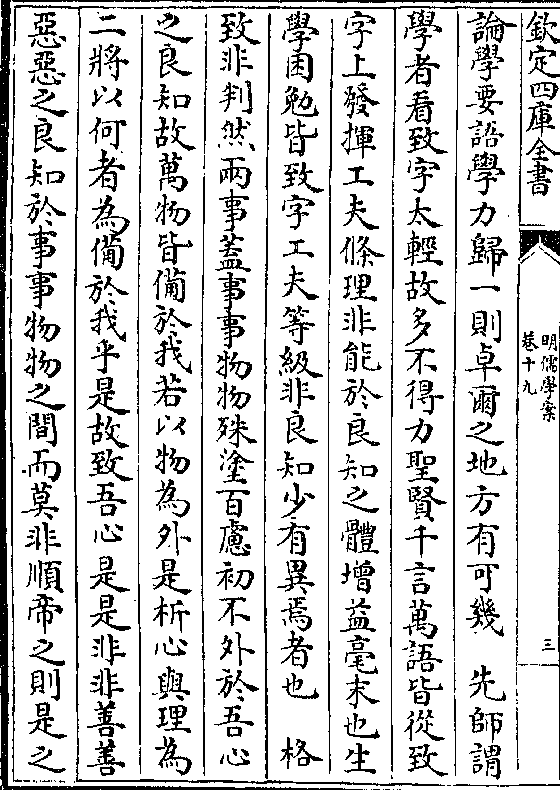 欽定四庫全書
明儒學案
卷十九
三
論學要語學力歸一則卓爾之地方有可幾　先師謂
學者看致字太輕故多不得力聖賢千言萬語皆從致
字上發揮工夫條理非能於良知之體增益毫末也生
學困勉皆致字工夫等級非良知少有異焉者也　格
致非判然兩事蓋事事物物殊塗百慮初不外於吾心
之良知故萬物皆備於我若以物為外是析心與理為
二將以何者為備於我乎是故致吾心是是非非善善
惡惡之良知於事事物物之間而莫非順帝之則是之